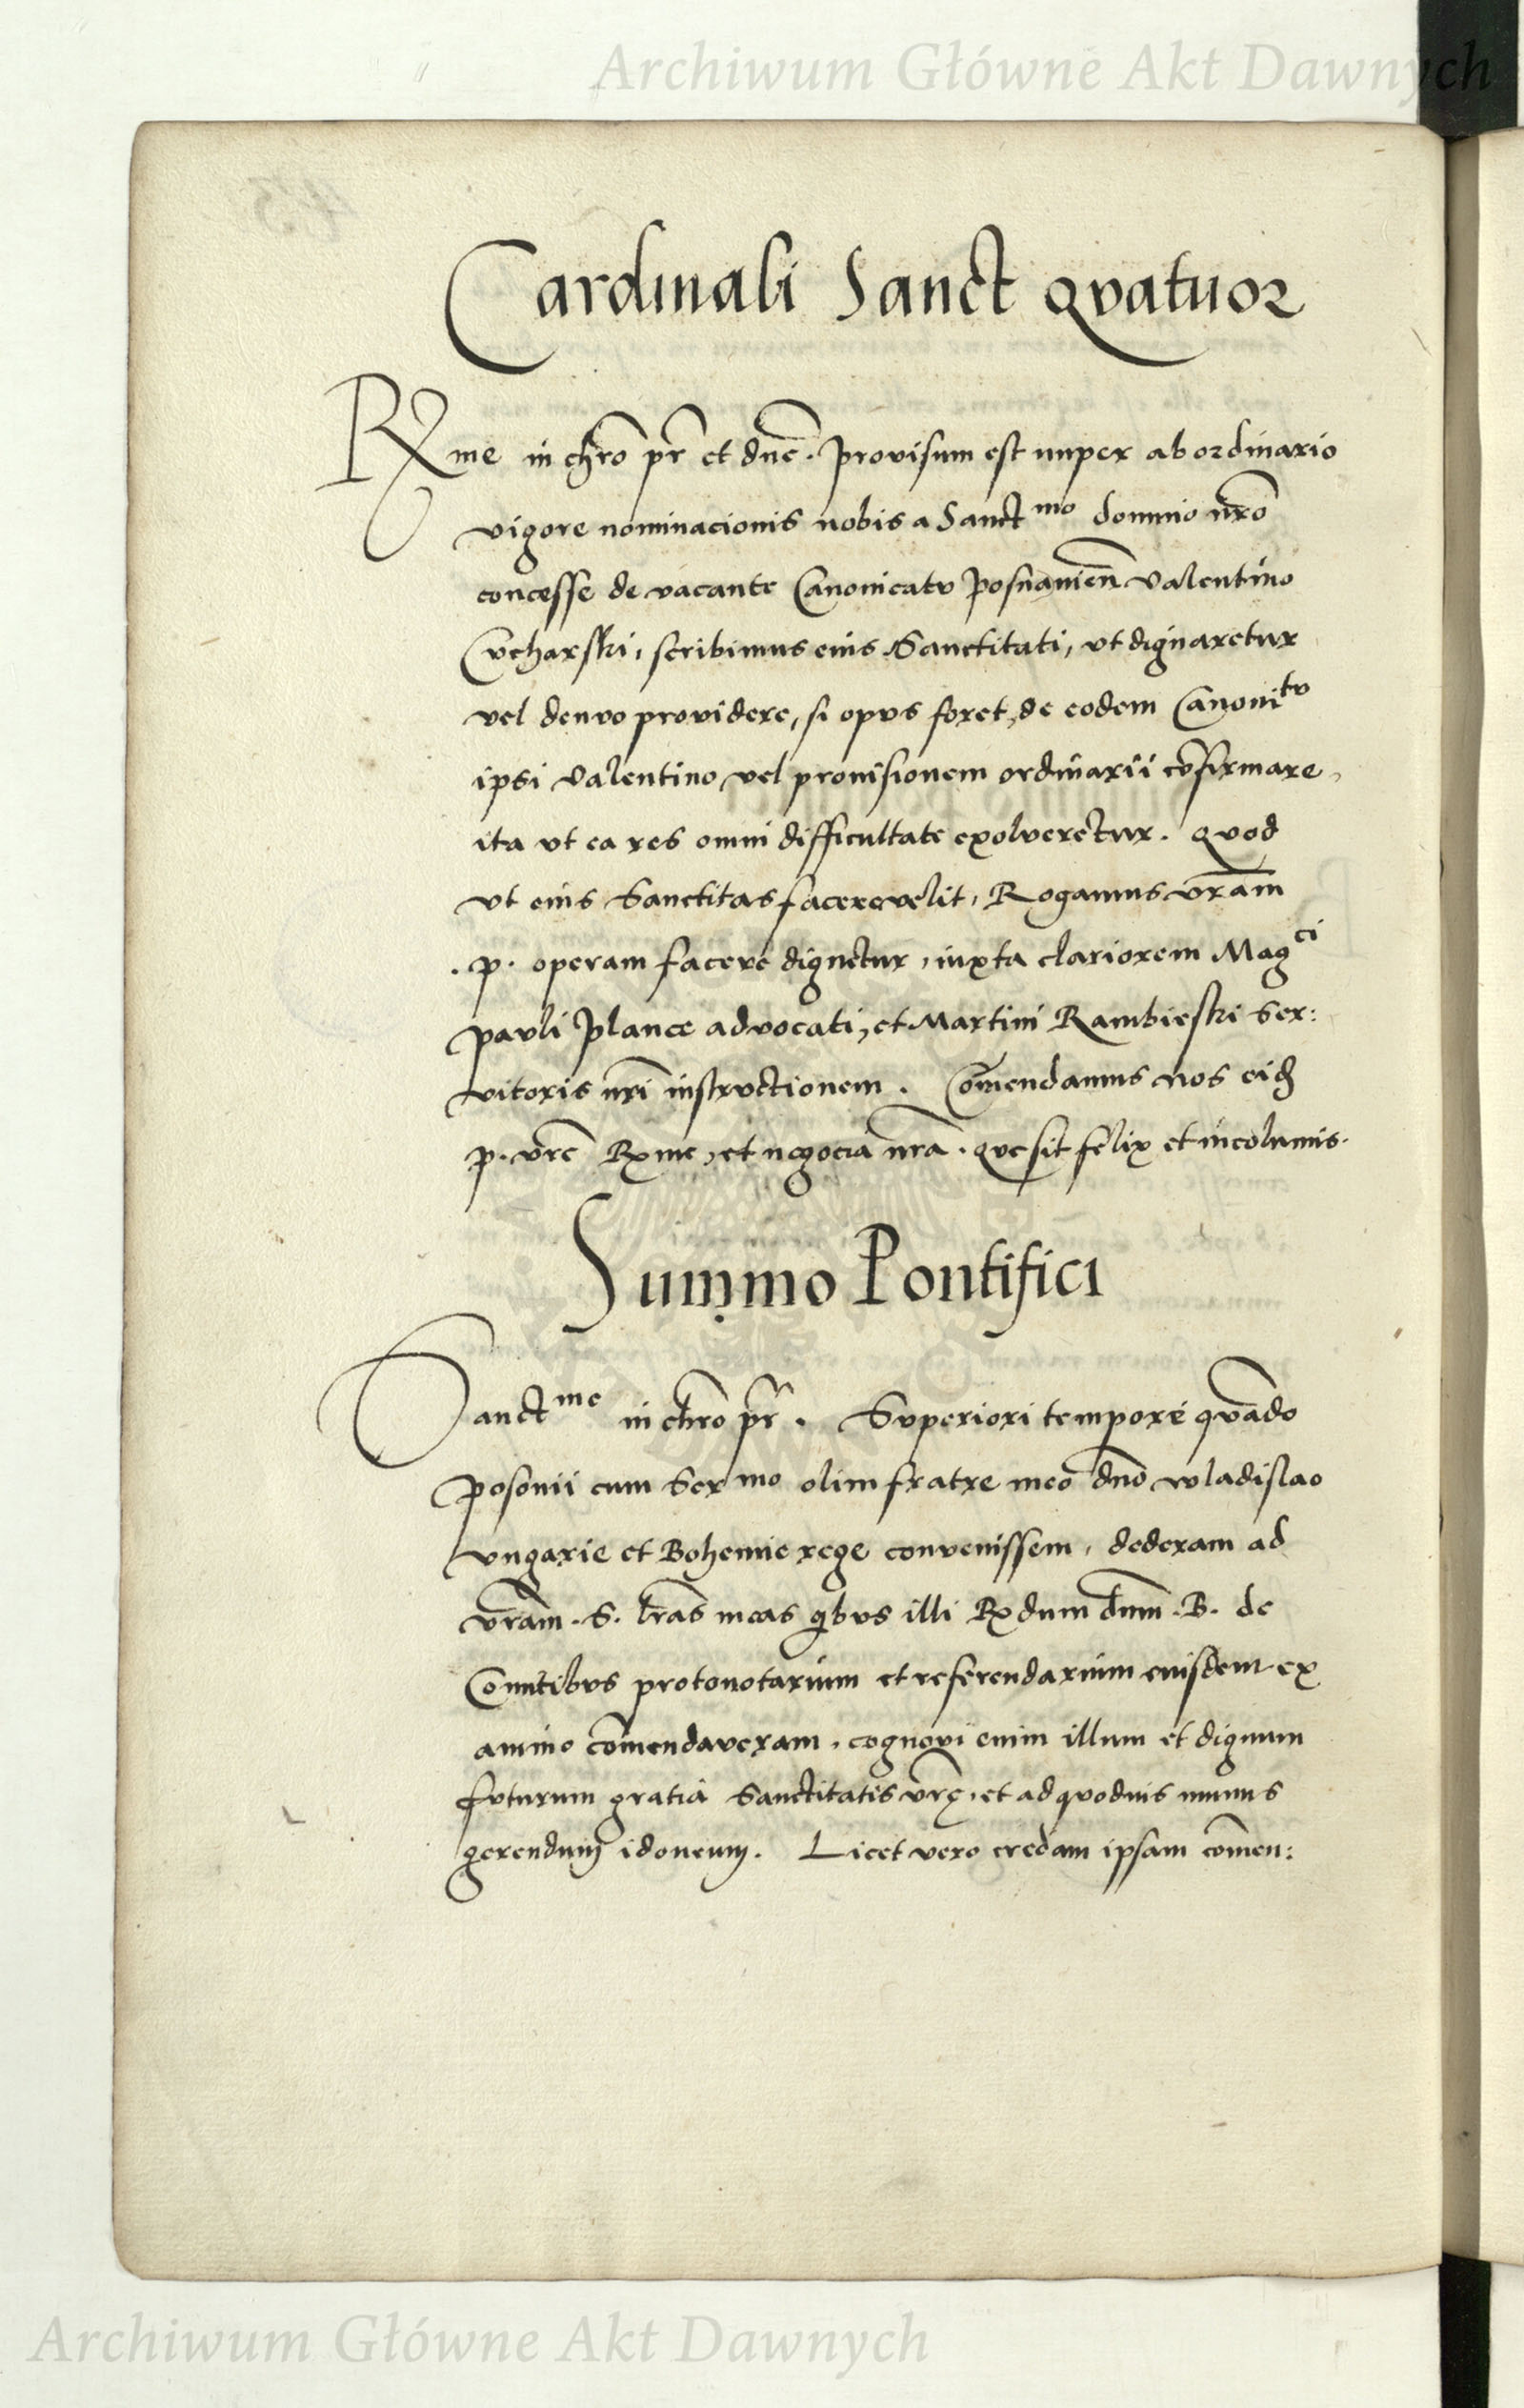 Archiwum Główne Akt Dawnych
Cardinali Sanct qvatuor
Rx̄me in chr̄o pr̄ et dn̄e. Provisum est nuper ab ordinario
vigore nominacionis nobis a Sanctmo domino nr̄o
concesse de vacante Canonicatv Posnanien̄ Valentino
Cvcharski, scribimus eius Sanctitati, vt dignaretur
vel denvo providere, si opvs foret, de eodem Canonitv
ipsi Valentino vel provisionem ordinarii cōfirmare,
ita vt ea res omni difficultate exolveretur. Qvod
vt eius Sanctitas facere velit, Rogamus vr̄am
.p. operam facere dignetur, iuxta clariorem Magci
pavli Plance advocati, et Martini Rambieski Ser:
vitoris nr̄i instrvctionem. Com̄endamus nos eidꝫ
p. vr̄e Rx̄me, et negocia nr̄a. qve sit felix et incolumis.
Summo Pontifici
Sanctme in chr̄o pr̄. Svperiori tempore qvādo
Posonii cum Sermo olim fratre meo dn̄o wladislao
vngarie et Bohemie rege convenissem, dederam ad
vr̄am .S. lr̄as meas qͥbvs illi Rx̄dum dn̄m .B. de
Comitibvs protonotarium et referendarium eiusdem ex
animo com̄endaveram, cognovi enim illum et dignum
fvturum gratia Sanctitatis vr̄ę, et ad qvodvis munus
gerendum idoneum. Licet vero credam ipsam com̄en:
Archiwum Główne Akt Dawnych